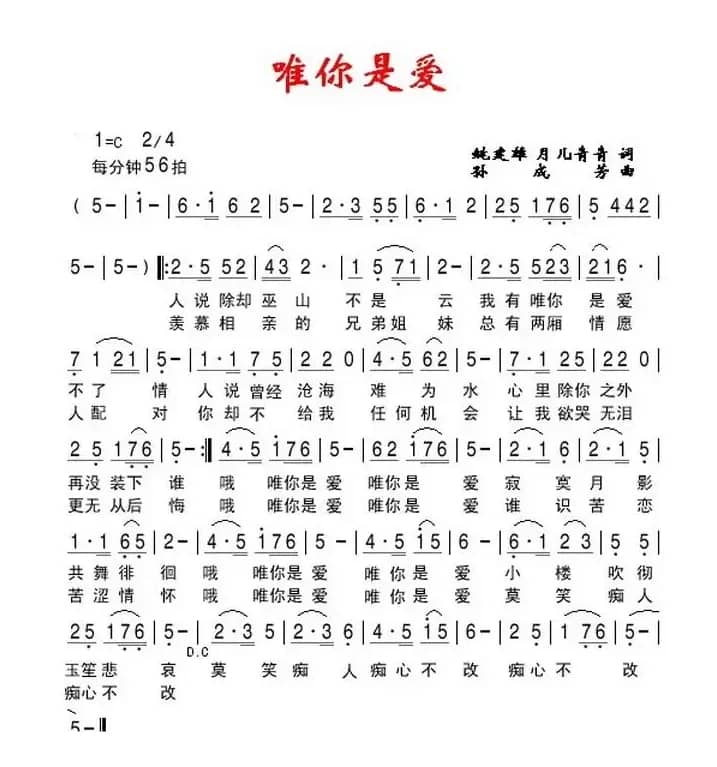 唯你是爱
1=C 2/4
姚建雄 月儿青青 词
每分钟56拍
孙 成 芳 曲
( 5- | i- | 6·i 6 2 | 5- | 2·3 5 5 | 6·i 2 | 25 176 | 5 442 |
5- | 5- ) ‖: 2·5 52 | 43 2· | 1 5 71 | 2- | 2·5 523 | 216· |
人 说 除却 巫 山 不 是 云 我 有 唯你 是 爱
羡 慕 相 亲 的 兄 弟姐 妹 总 有 两厢 情 愿
7 1 21 | 5- | 1·1 7 5 | 2 2 0 | 4·5 62 | 5- | 7·1 25 | 22 0 |
不 了 情 人 说 曾经 沧 海 难 为 水 心 里 除你 之外
人 配 对 你 却 不 给 我 任 何 机 会 让 我 欲哭 无泪
2 5 176 | 5- :‖ 4·5 i76 | 5- | 62 i76 | 5- | 2·1 6 | 2·1 5 |
再没 装下 谁 哦 唯你是 爱 唯你是 爱 寂 寞 月 影
更无 从后 悔 哦 唯你是 爱 唯你是 爱 谁 识 苦 恋
1·1 65 | 2- | 4·5 i76 | 5- | 4·5 i5 | 6- | 6·1 2 3 |
共 舞 徘 徊 哦 唯你是 爱 唯你是 爱 小 楼 吹 彻
苦 涩 情 怀 哦 唯你是 爱 唯你是 爱 莫 笑 痴 人
25 176 | 5- | 2·3 5 | 2·3 6 | 4·5 i5 | 6- | 2 1 76 | 5- |
D.C
玉笙 悲 哀 莫 笑 痴 人 痴心 不 改 痴心 不 改
痴心 不 改
5- ‖